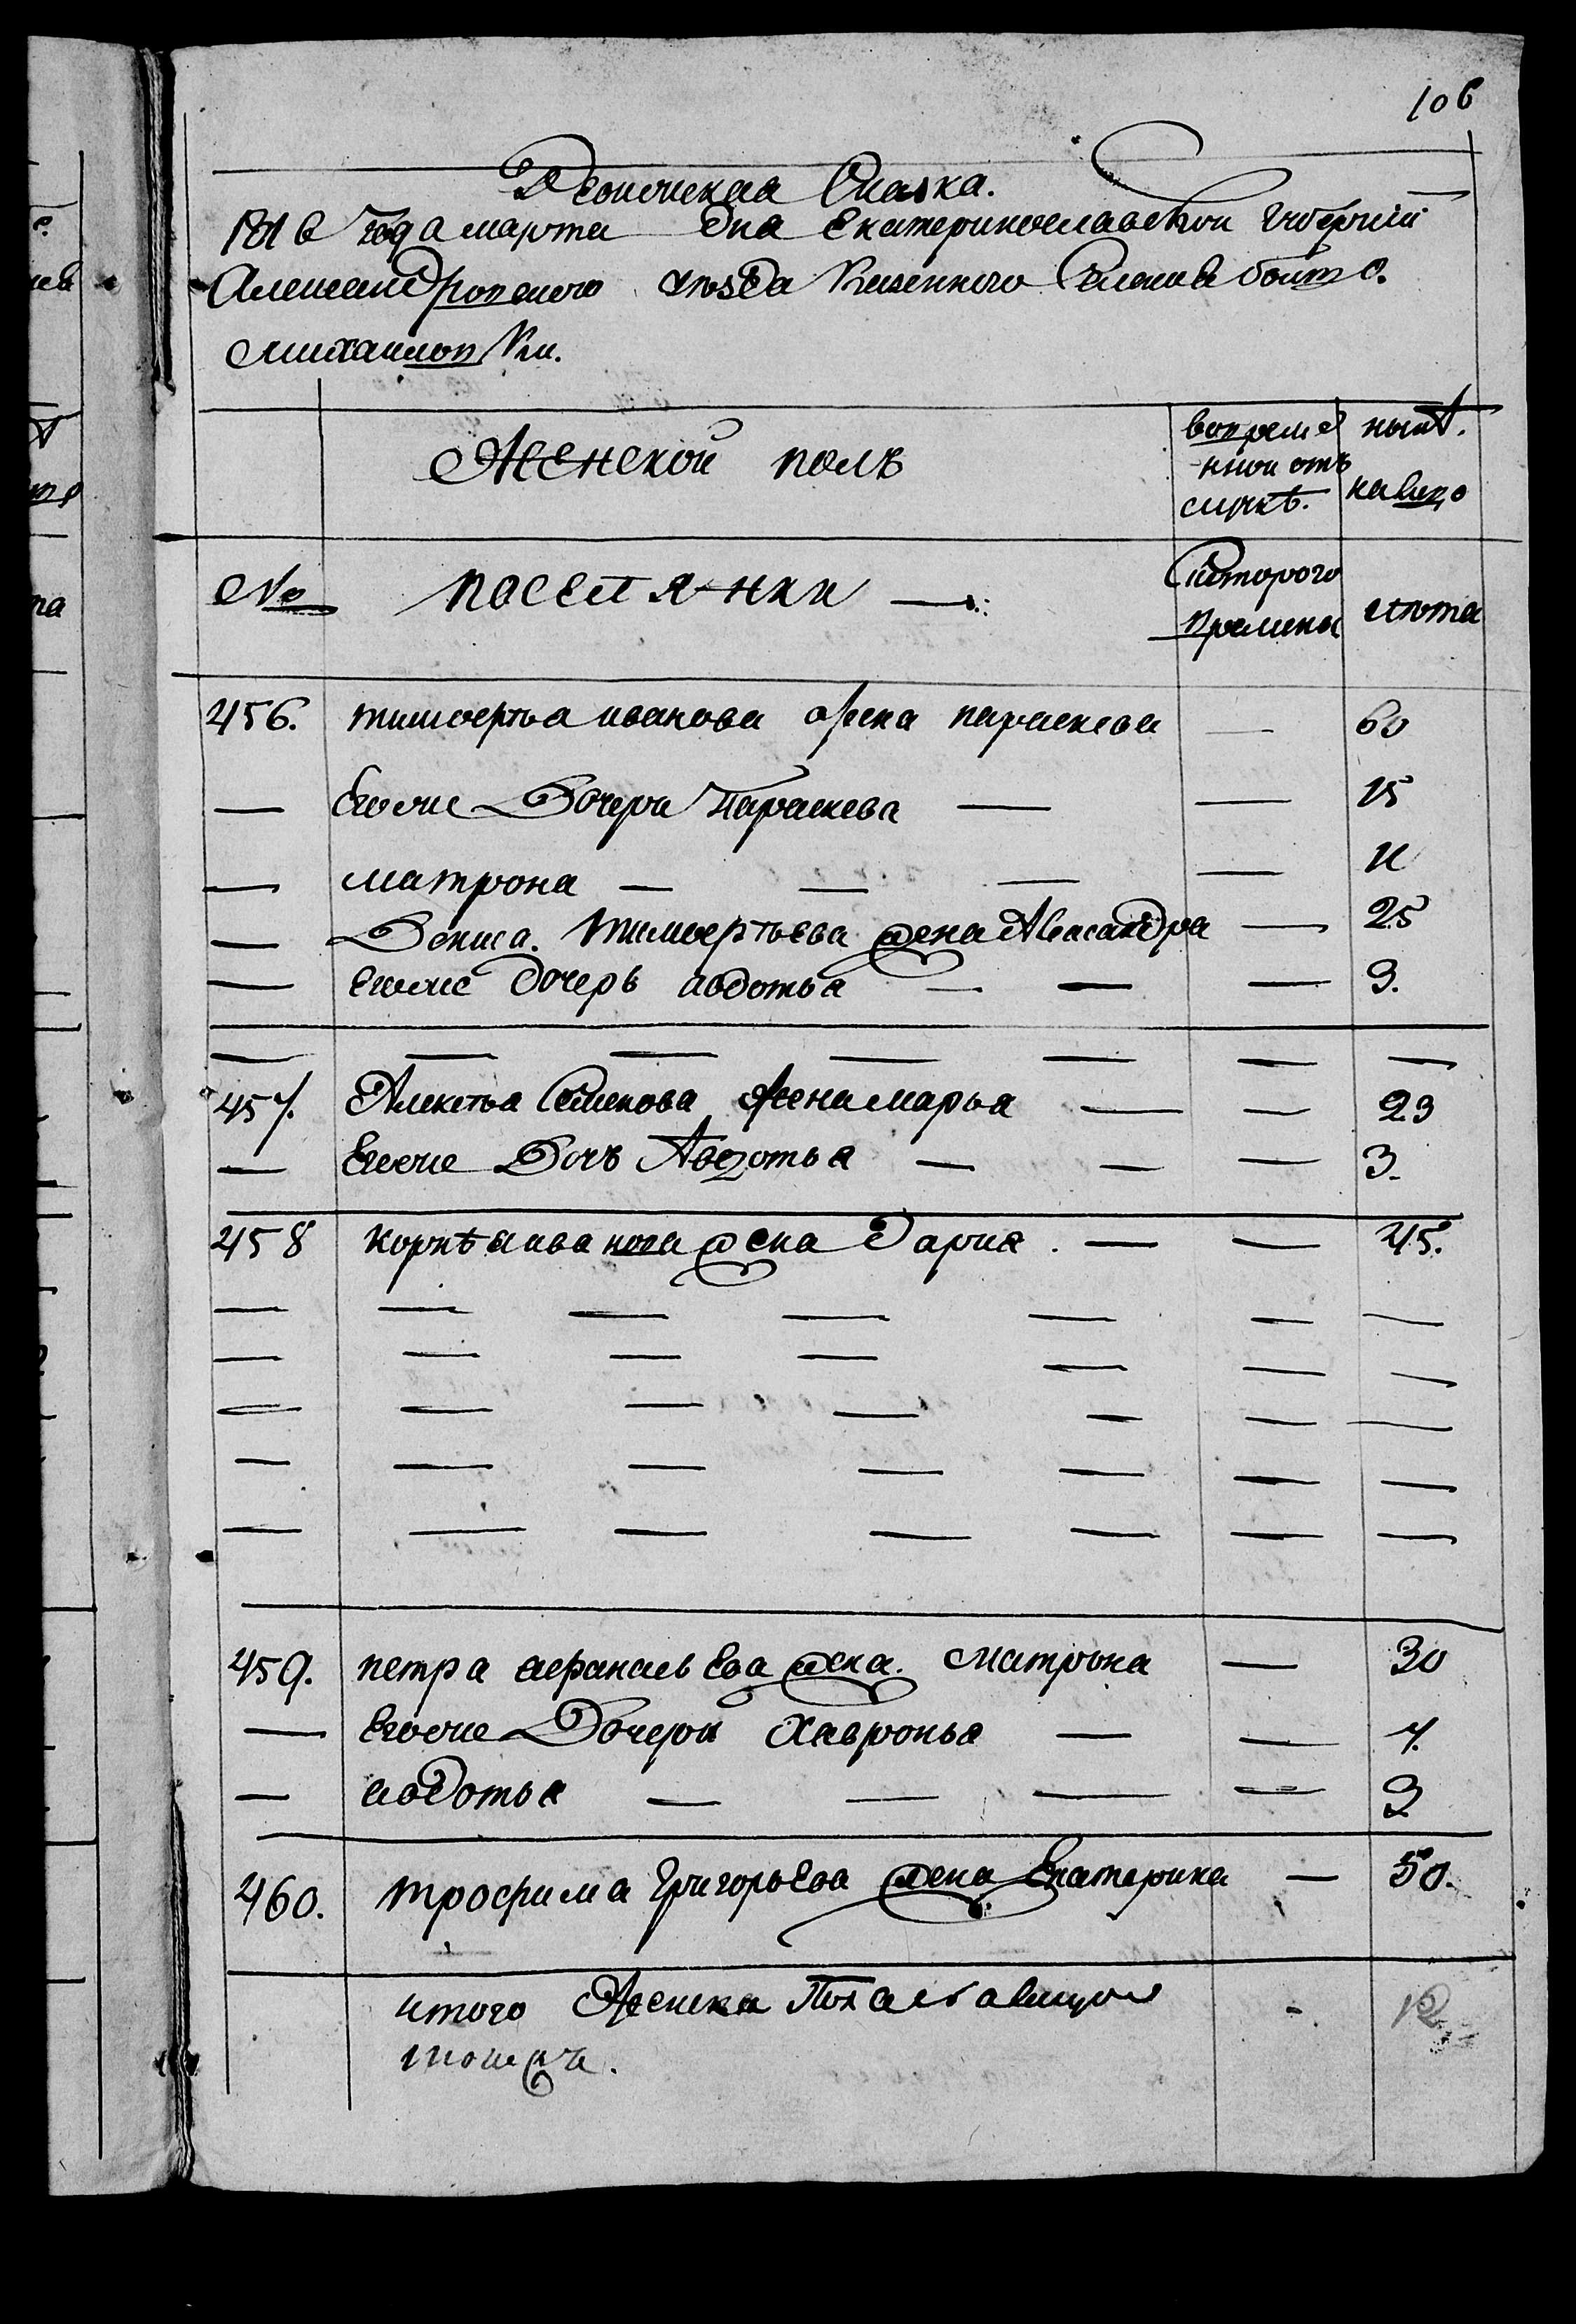 106
Ревижская Сказка.
1816 года марта дня Екатеринославской Губерніи
Александровского уѣзда Казенного Селения больто.
михаиловки.
Женской полъ
вовремѣнной отлучкѣ.
нынѣ на лицо
№ поселянки
Скоторого времени
лѣта
456. тимоѳѣя иванова жена параскева — 60
— Егоже Дочери Параскева — — 15
— матрона — — — — 11
— Дениса тимоѳѣева жена Алєксандра — 25
— Егоже дочерь авдотья — — — 3.
— — — — — — —
457. Алексѣя Семенова жена марья — — 23
— Егоже Дочъ Авдотья — — — 3.
458 корнѣя иванова жена дария. — — 45.
— — — — — — —
— — — — — — —
— — — — — — —
— — — — — — —
— — — — — — —
459. петра афанасьева жена. матрона — 30
— Егоже Дочери Хавронья — — 7.
— авдотья — — — — 3
460. трофима Григорьева жена Екатерина — 50.
итого женска Пола налицо - 12